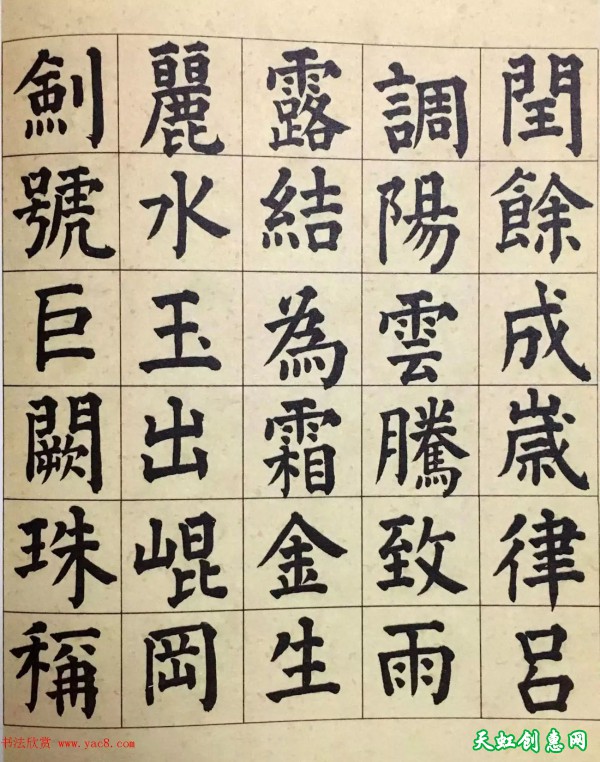 閏餘成嵗律呂
調陽雲騰致雨
露結為霜金生
麗水玉出崐岡
劍號巨闕珠稱
书法欣赏 www.yac8.com
天虹创惠网